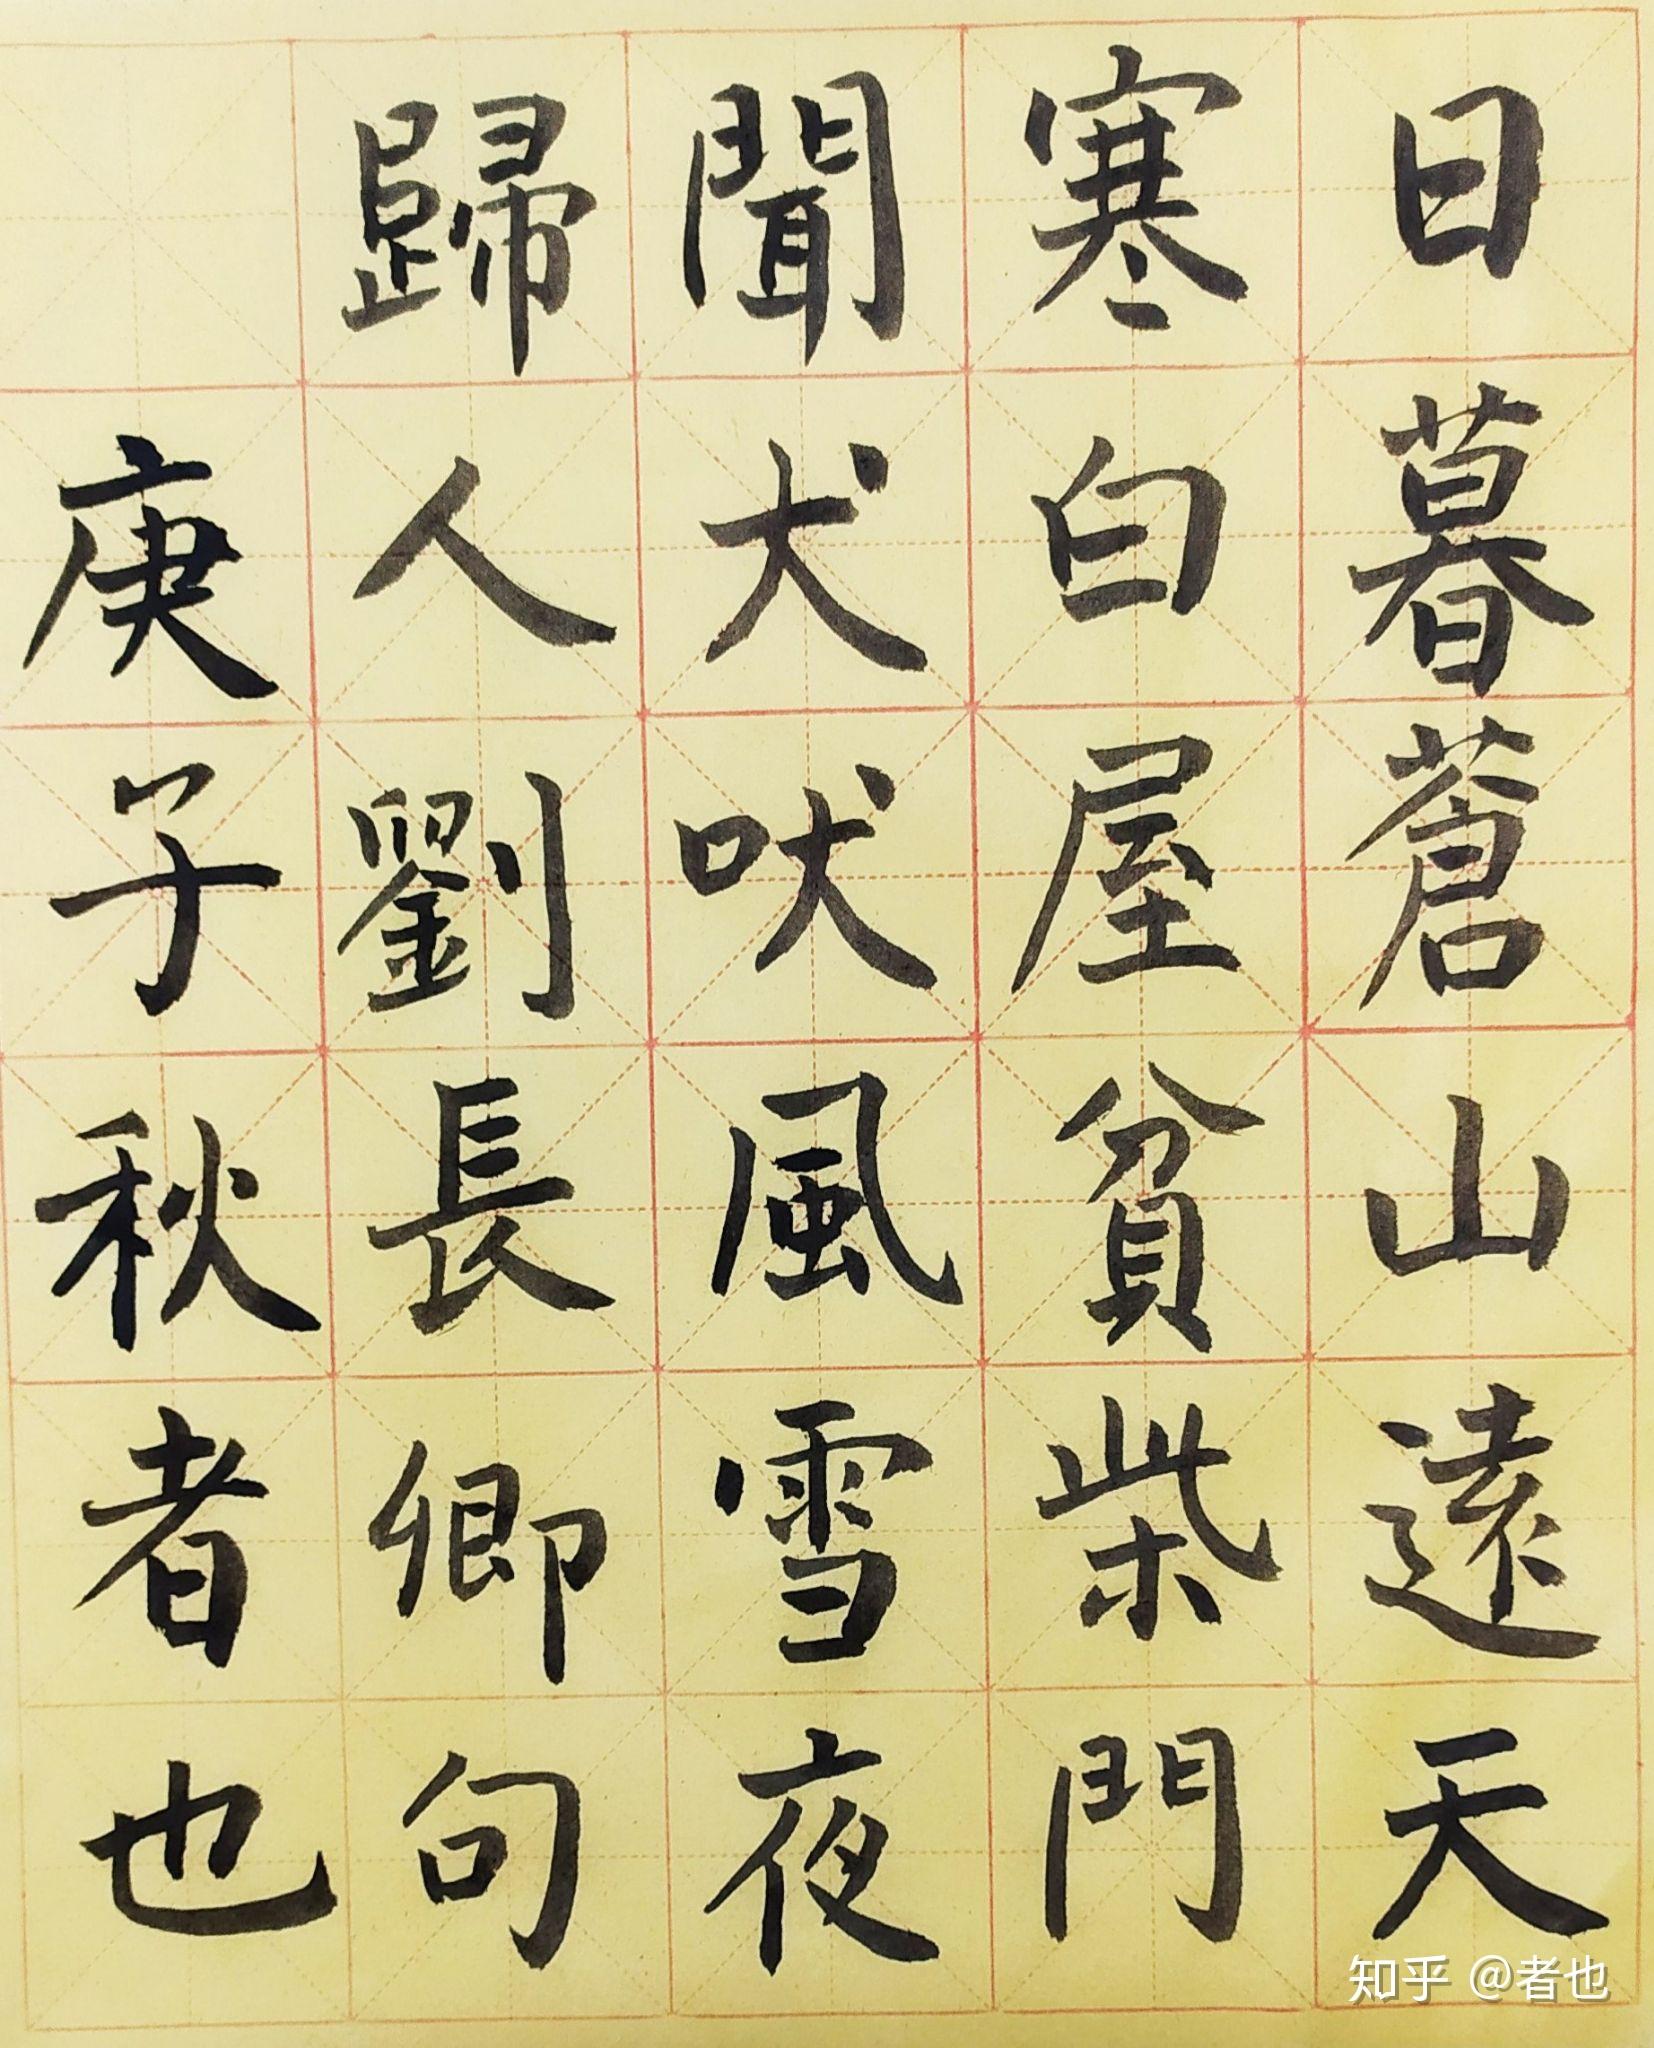 日暮蒼山遠天
寒白屋貧柴門
聞犬吠風雪夜
歸人劉長卿句
庚子秋者也
知乎 @者也